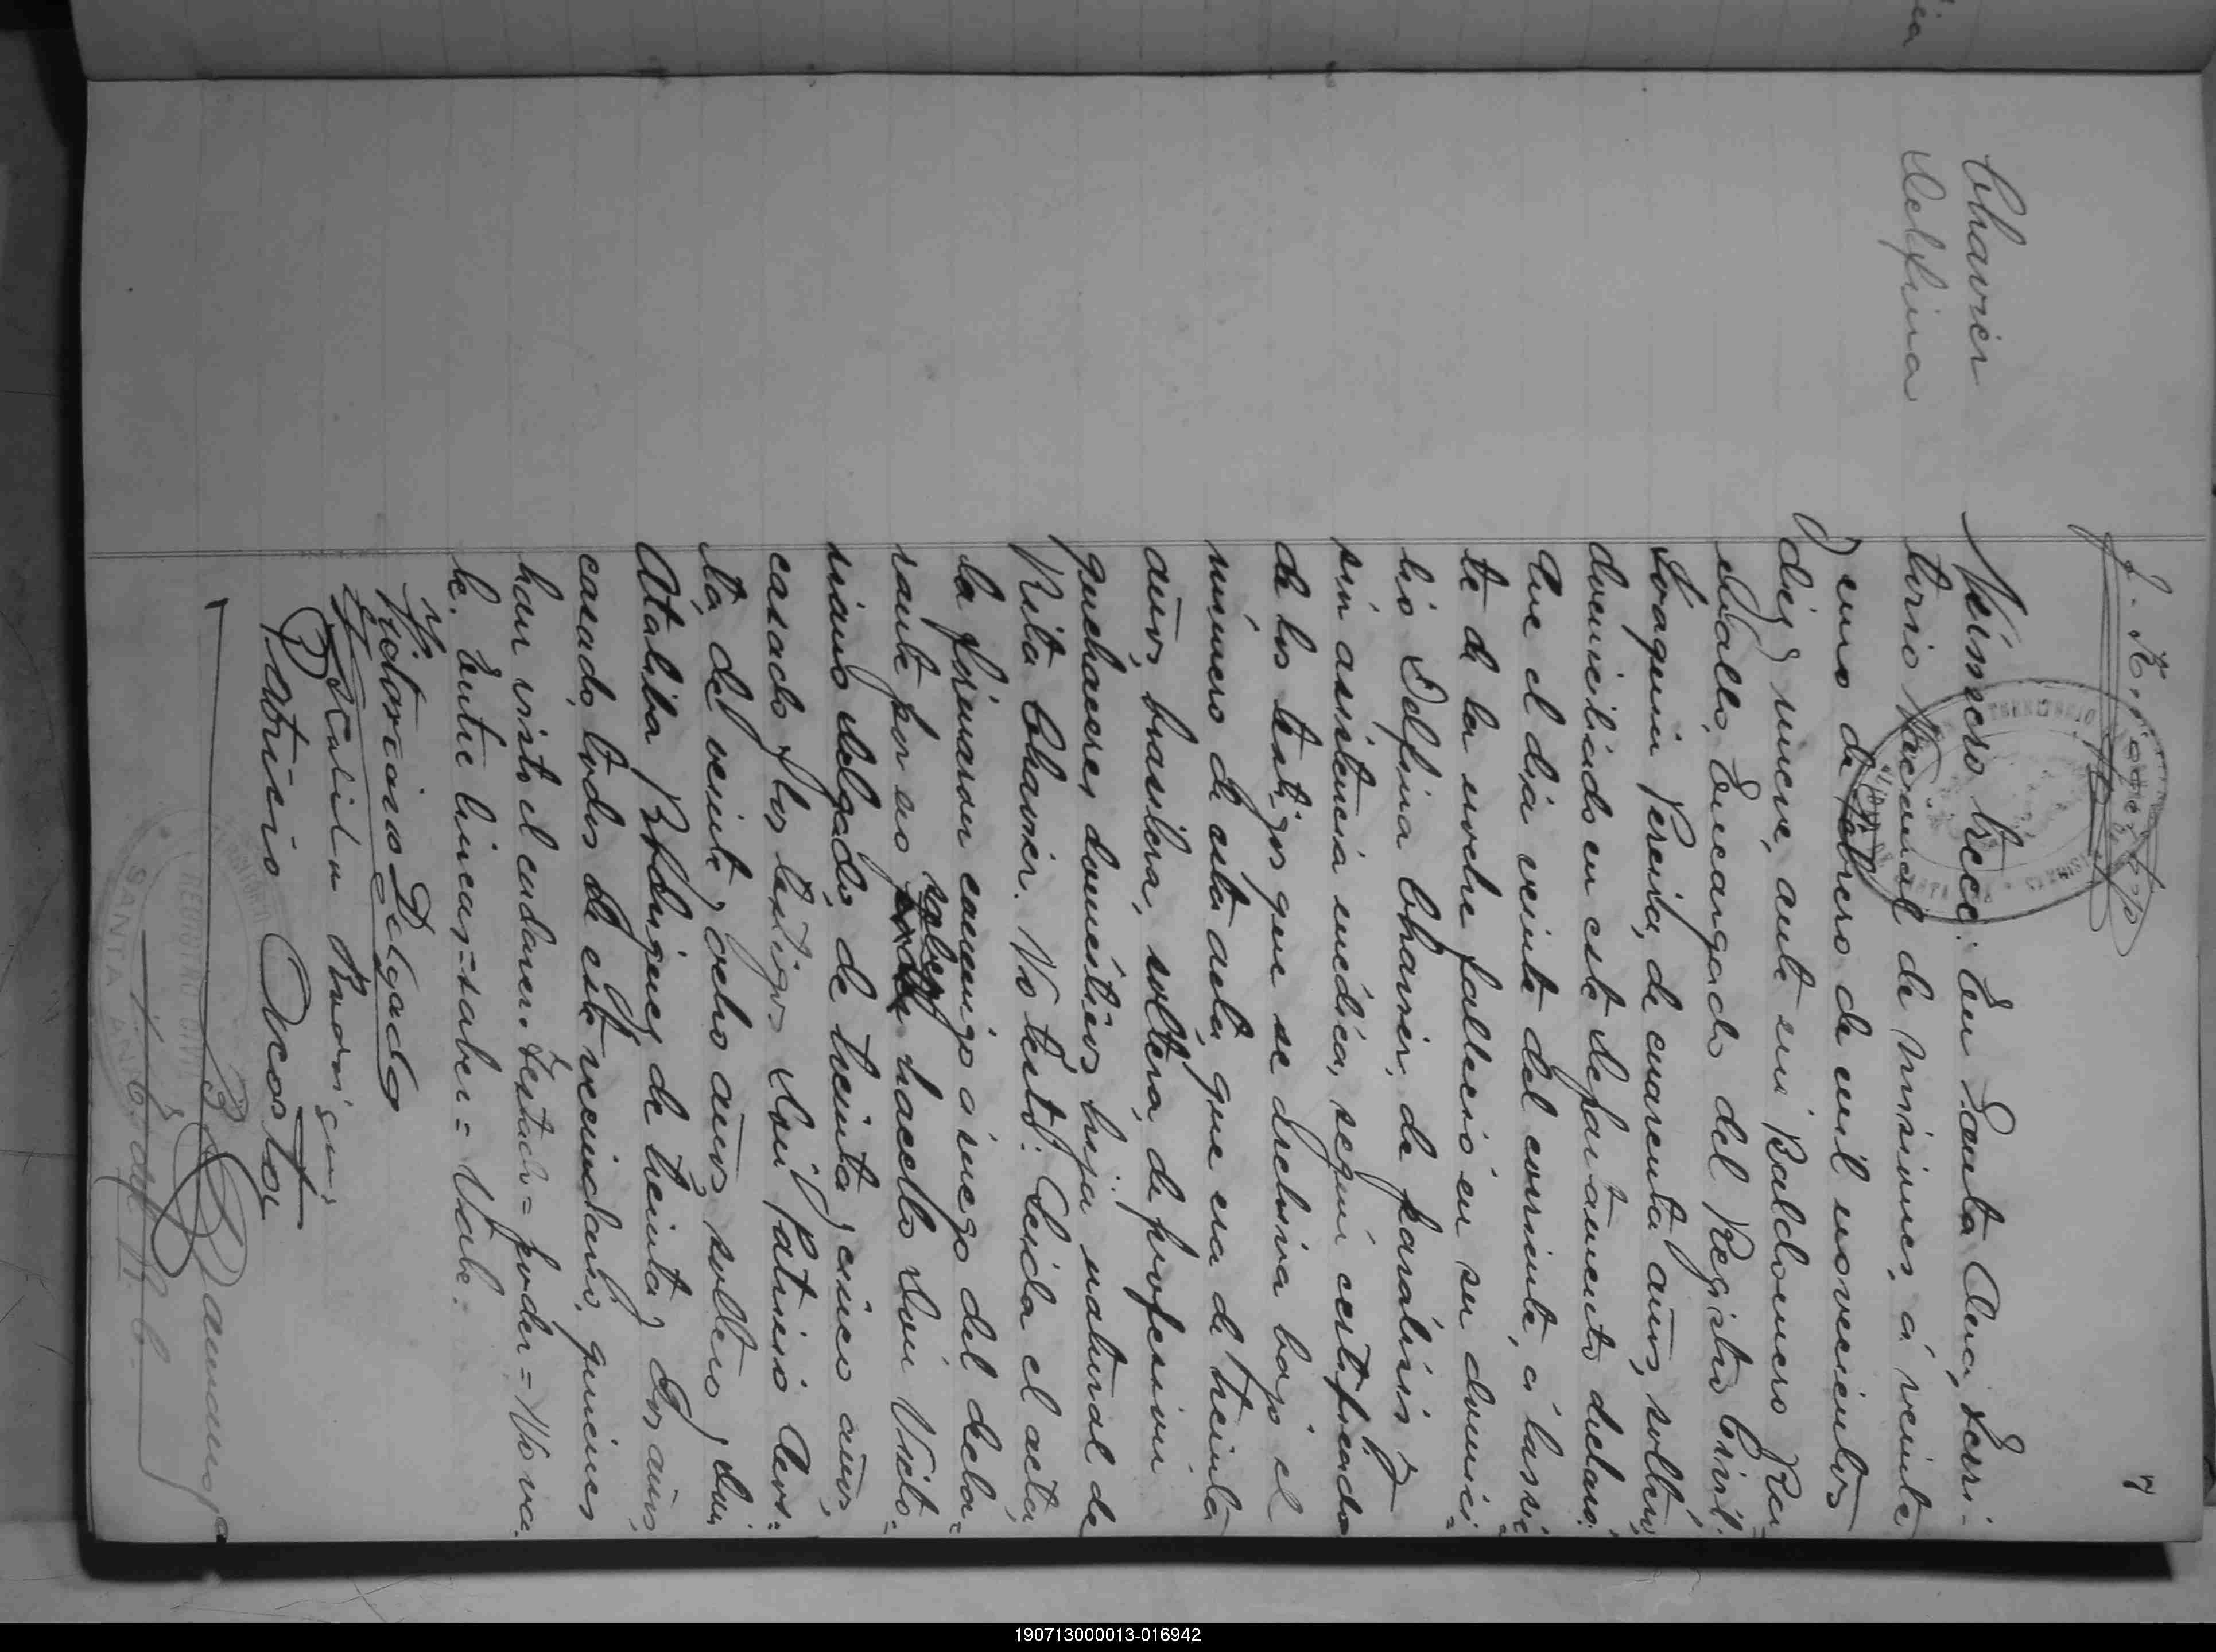 7
J. Rodriguez
Chavier
Delfina
Número trece: En Santa Ana, Terri-
torio Nacional de Misiones, á veinte
y uno de Febrero de mil novecientos
diez y nueve, ante mi Baldomero
Encargado del Registro Civil,
Joaquin Pereira, de cuarenta años, soltero,
domiciliado en este departamento declaró:
Que el dia veinte del corriente, á las sie-
te de la noche fallecio en su domici-
lio Delfina Chavier, de parálisis y
sin asistencia médica, segun certificado
de los testigos que se archiva bajo el
número de esta acta, que era de treinta
años, brasilera, soltera, de profesion
quehaceres domésticos hija natural de
Rita Chavier. No testó. Leida el acta,
la firmaron conmigo á ruego del decla-
rante por no saber hacerlo Don Victo-
riano Delgado, de treinta y cinco años,
casado y los testigos Don Patricio Acos-
ta de veinte y ocho años soltero y Don
Ataliba Rodriguez de treinta y dos años,
casado, todos de este vecindario, quienes
han visto el cadaver. Testado = poder = No va-
le. Entre lineas = saber = Vale.
Victoriano Delgado
Ataliba Rodrigues
Patricio Acosta
SANTA ANA
REGISTRO CIVIL
190713000013-016942